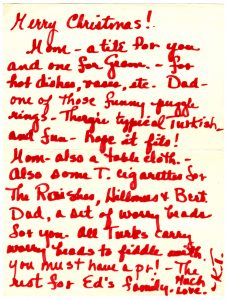 Merry Christmas!
Mom - a tile for you
and one for Gram. - for
hot dishes, vases, etc. Dad -
one of those funny puzzle
rings - They're typical Turkish
and fun - hope it fits!
Mom - also a table cloth. -
Also some T. cigarettes for
The Hillmes & Bert.
Dad, a set of worry beads
for you. All Turks carry
worry beads to fiddle with
you must have a pr! - The
rest for Ed's family. Much
Love.